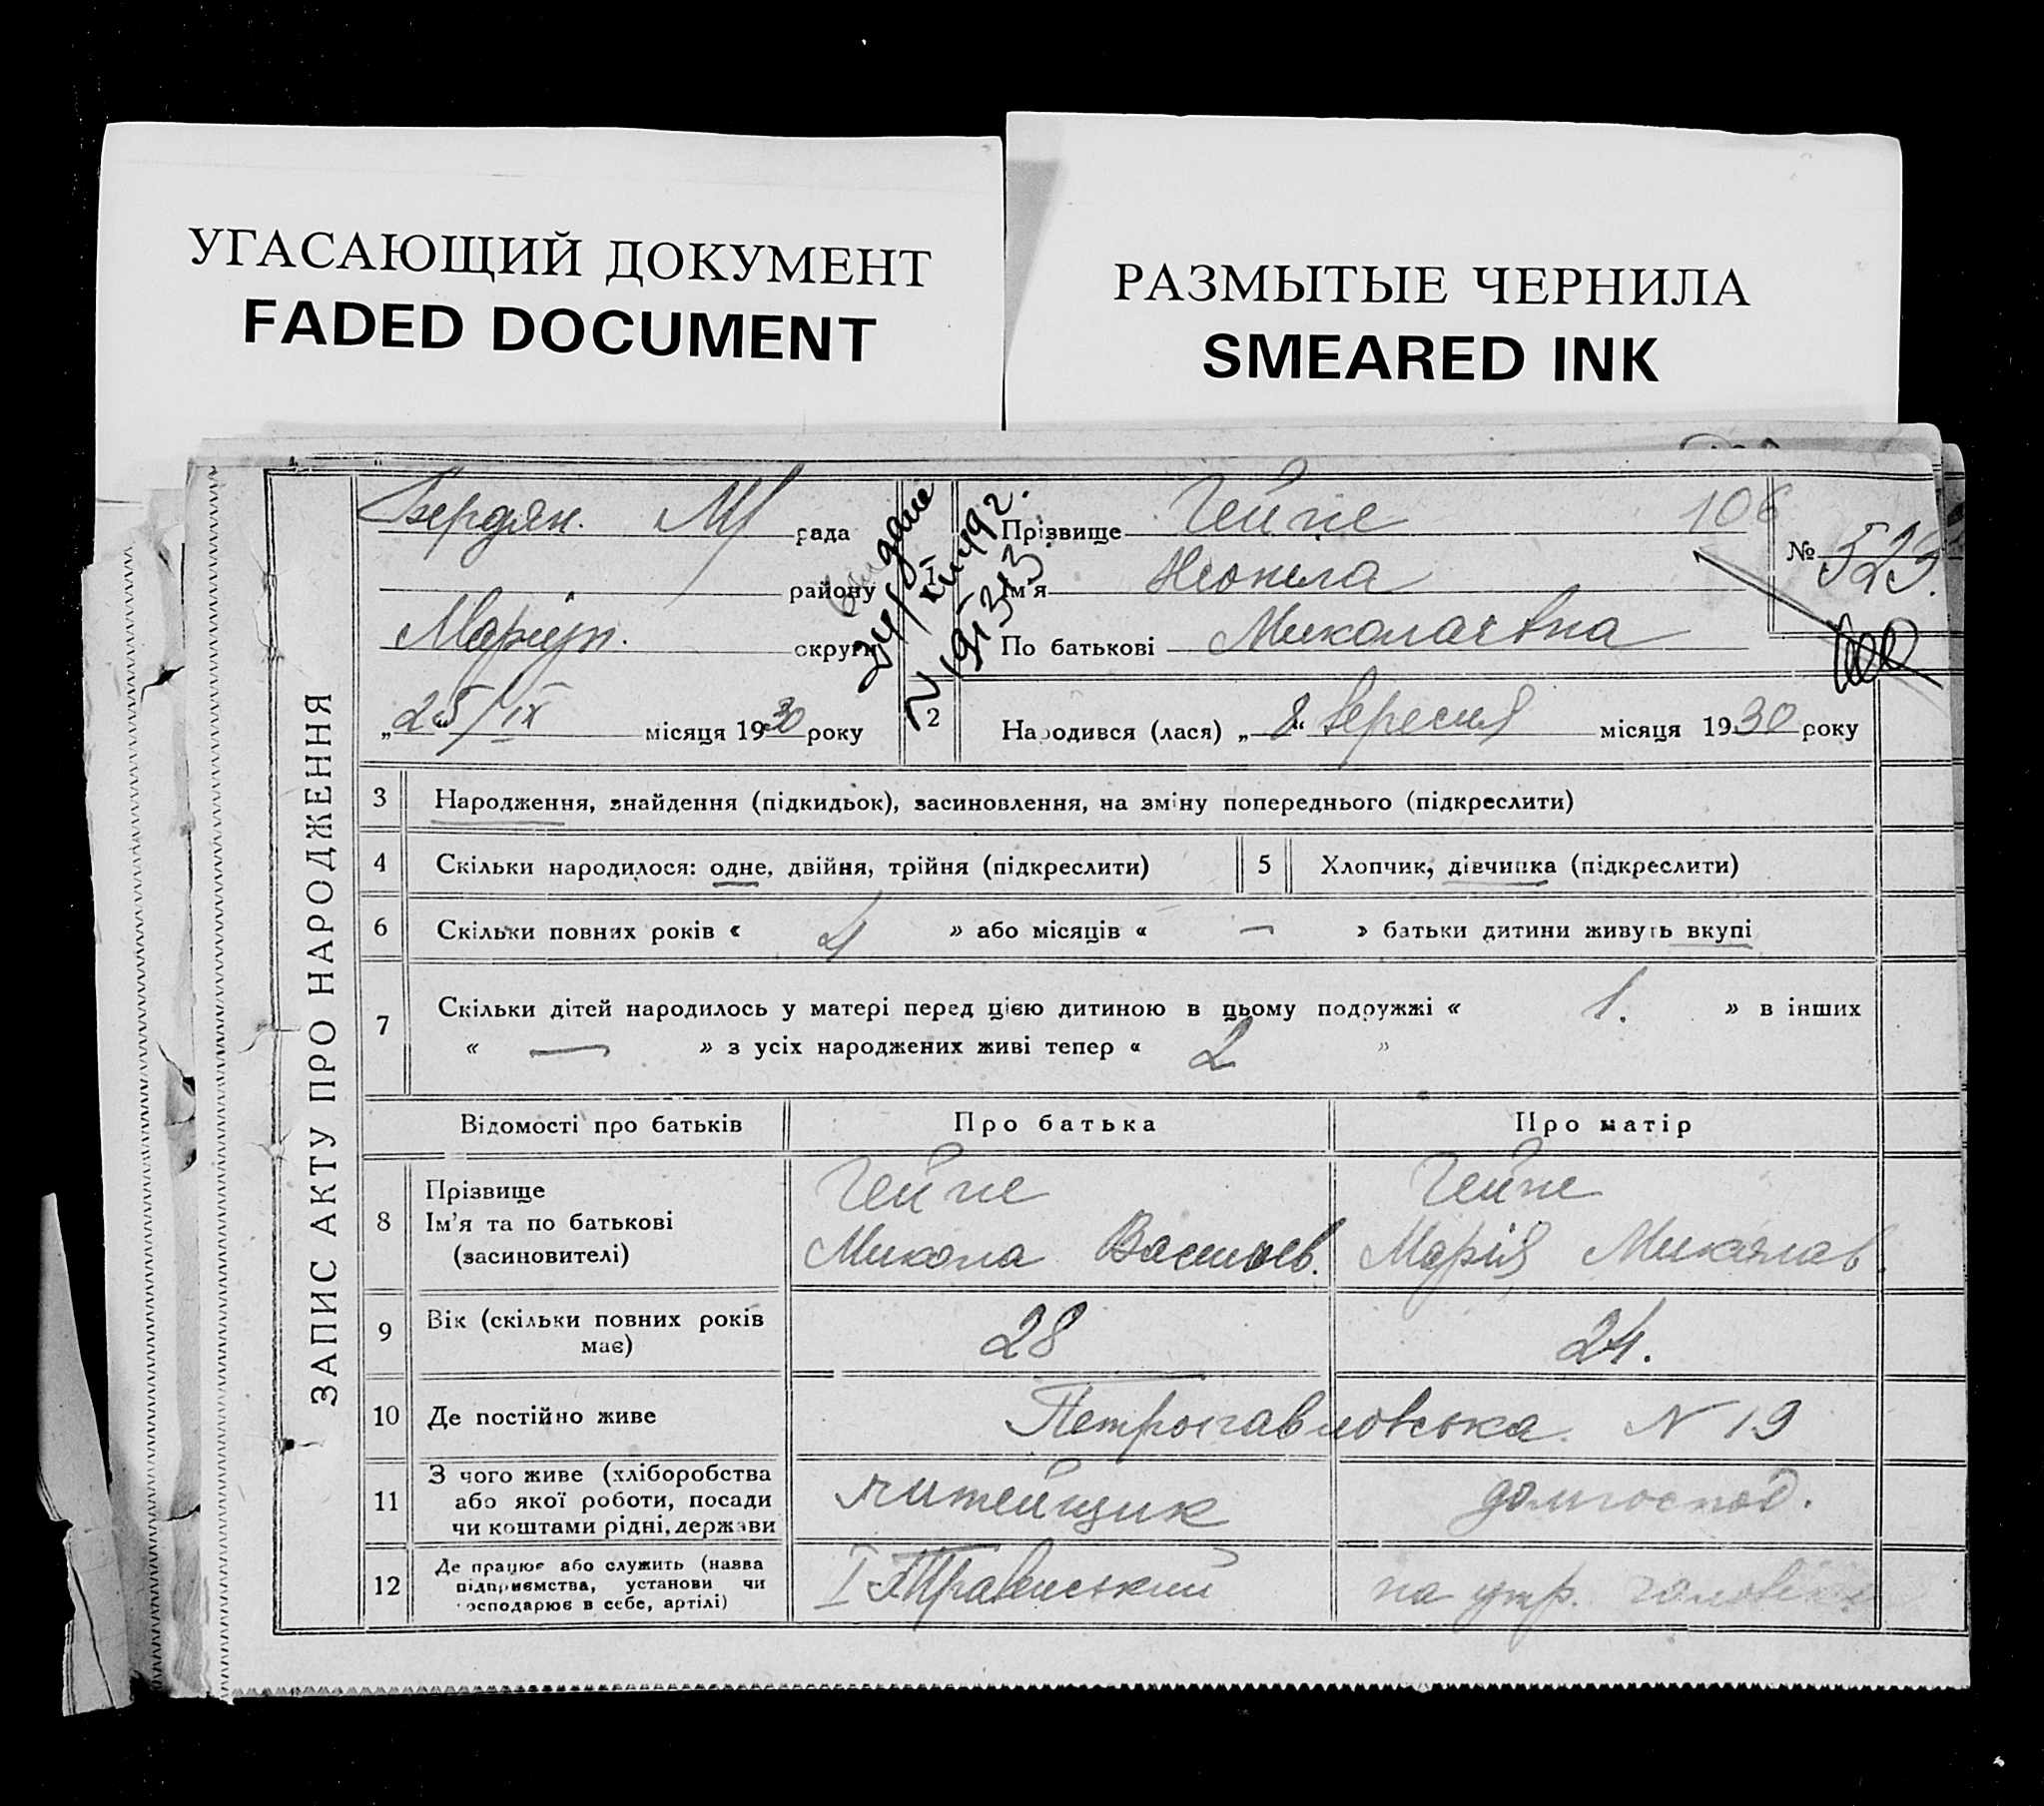 УГАСАЮЩИЙ ДОКУМЕНТ
FADED DOCUMENT
РАЗМЫТЫЕ ЧЕРНИЛА
SMEARED INK
ЗАПИС АКТУ ПРО НАРОДЖЕННЯ
Бердян. М/ рада
району
Маріуп. округи
„25/IX місяця 1930 року
1 Прізвище Гейне 106
№ 523.
Ім'я Неоніла
По батькові Миколаєвна
2 Народився (лася) „8“ вересня місяця 1930 року
3 Народження, знайдення (підкидьок), засиновлення, на зміну попереднього (підкреслити)
4 Скільки народилося: одне, двійня, трійня (підкреслити) 5 Хлопчик, дівчинка (підкреслити)
6 Скільки повних років « 4 » або місяців « — » батьки дитини живуть вкупі
7 Скільки дітей народилось у матері перед цією дитиною в цьому подружжі « 1. » в інших
« — » з усіх народжених живі тепер « 2 »
Відомості про батьків Про батька Про матір
8 Прізвище Гейне Гейне
Ім'я та по батькові Микола Васильев. Марія Миколав.
(засиновителі)
9 Вік (скільки повних років 28 24.
має)
10 Де постійно живе Петропавловська N 19
11 З чого живе (хліборобства
або якої роботи, посади литейщик домгоспод.
чи коштами рідні, держави
12 Де працює або служить (назва
підприємства, установи чи на утр. чоловіка
господарює в себе, артілі)